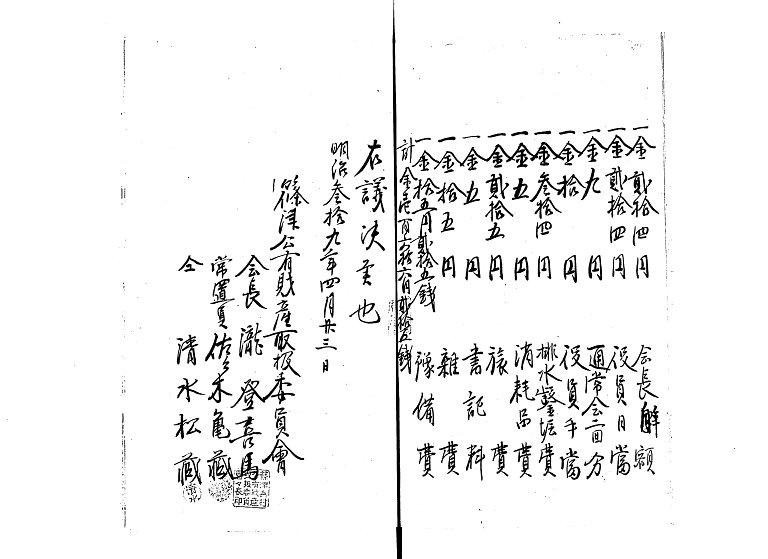 一金貳拾四円 会長解額
一金貳拾四円 役員日當
一金九円 通常会二回分
一金拾円 役員手當
一金参拾四円 排水鑿堀費
一金五円 消耗品費
一金貳拾五円 旅費
一金五円 書記料
一金拾五円 雑費
一金拾五円貳拾五銭 豫備費
計金壱百六拾六円貳拾五銭
右議決候也
明治参拾九年四月廿三日
篠津公有財産取扱委員會
会長 瀧登喜馬
常置員 佐々木亀藏
仝 清水松藏